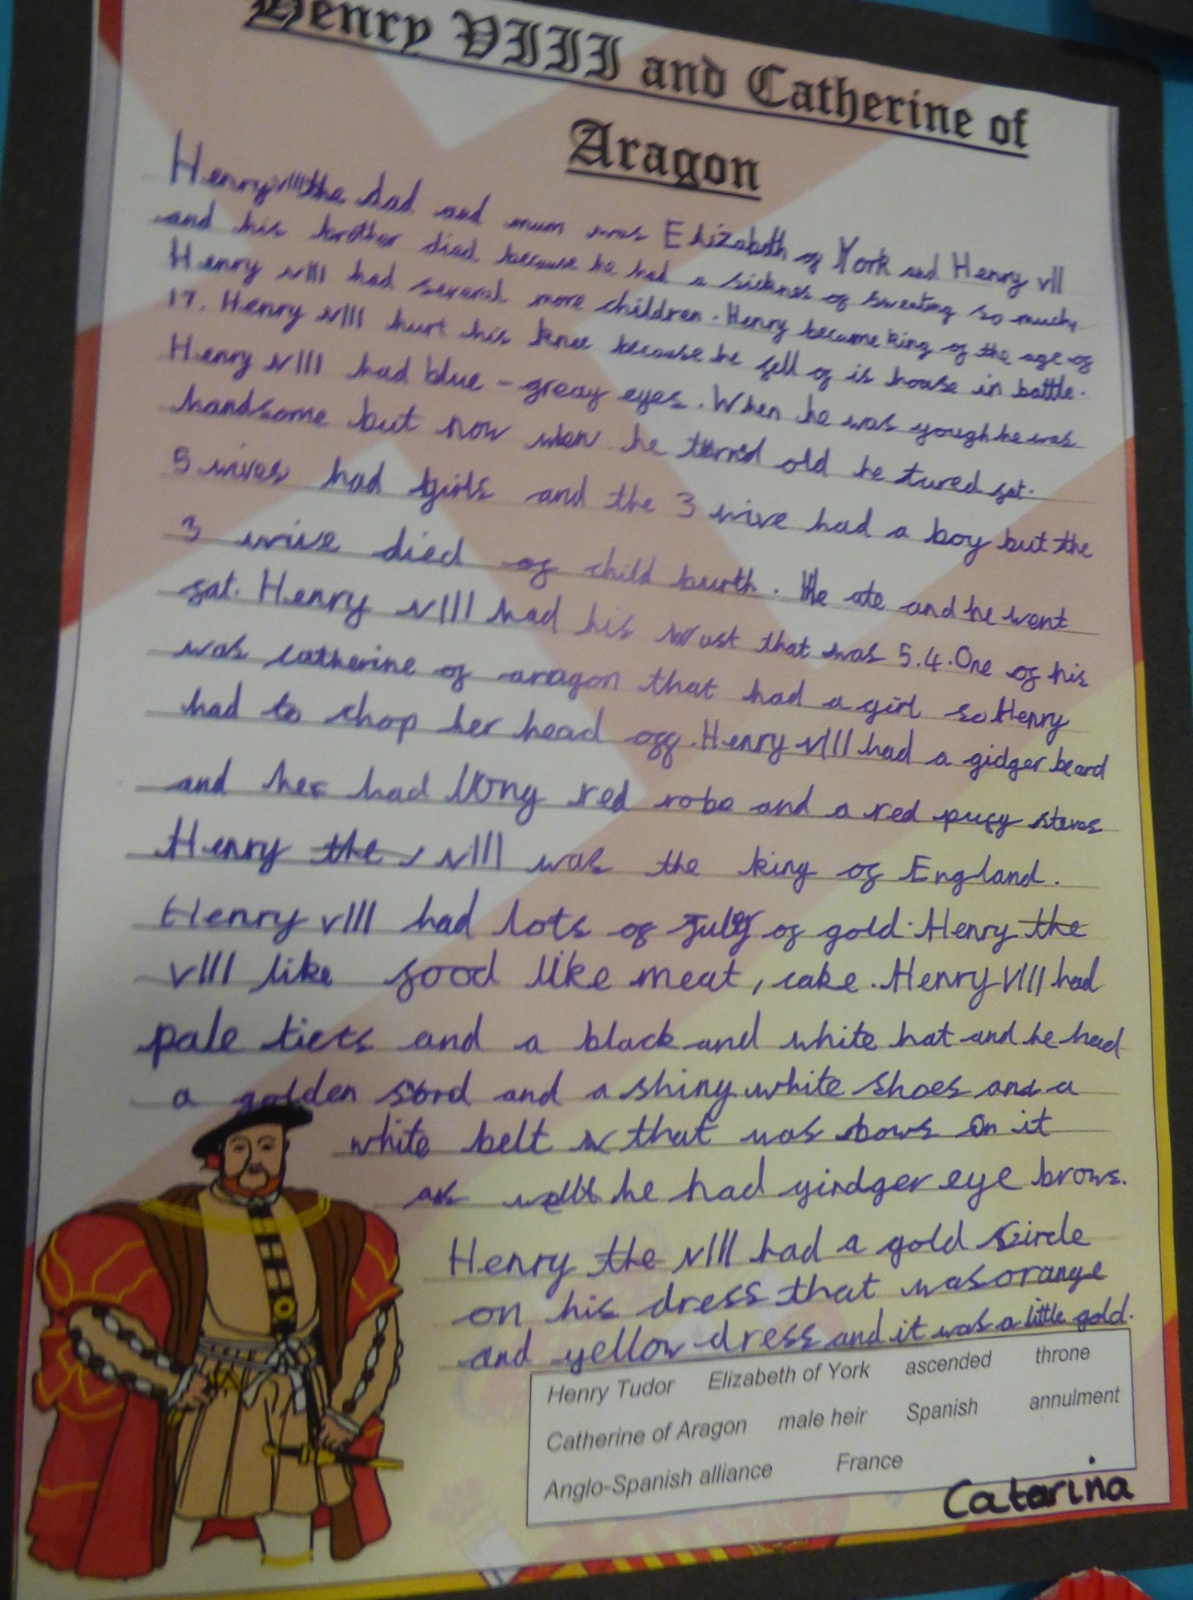 Henry VIII and Catherine of
Aragon
Henry VIII the dad and mum was Elizabeth of York and Henry VII
and his brother died because he had a sickness of sweating so much,
Henry VIII had several more children. Henry became king of the age of
17. Henry VIII hurt his knee because he fell of is house in battle.
Henry VIII had blue - greay eyes. When he was yough he was
handsome but now when he turred old he tured fat.
5 wives had girls and the 3 wive had a boy but the
3 wive died of child burth. He ate and he went
fat. Henry VIII had his wust that was 5.4. One of his
was catherine of aragon that had a girl so Henry
had to chop her head off. Henry VIII had a gidger beard
and had long red robe and a red pufy
Henry the VIII was the king of England.
Henry VIII had lots of of gold. Henry the
VIII like food like meat, cake. Henry VIII had
pale and a black and white hat and he had
a golden sord and a shiny white shoes and a
white belt that was bows on it
as well he had gindger eye brows.
Henry the VIII had a gold circle
on his dress that was orange
and yellow dress and it was a little gold.
Henry Tudor Elizabeth of York ascended throne
Catherine of Aragon male heir Spanish annulment
Anglo-Spanish alliance France
Catarina